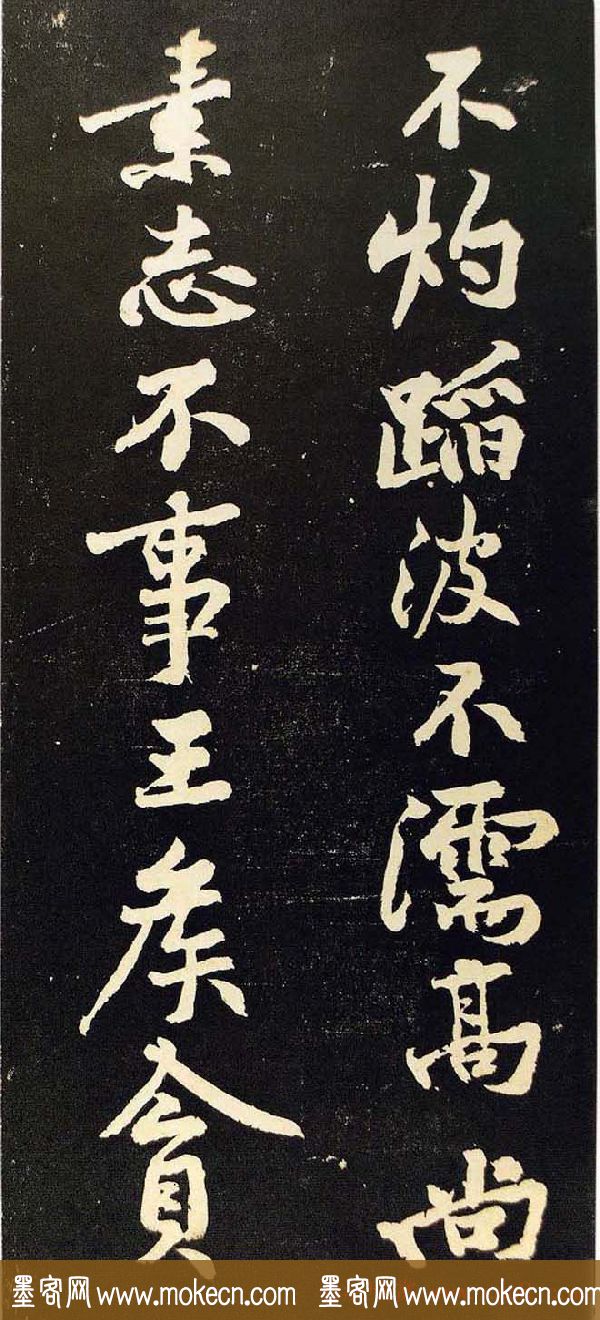 不灼蹈波不濡高尚
素志不事王侯貪
墨客网 www.mokecn.com 墨客网 www.mokecn.com